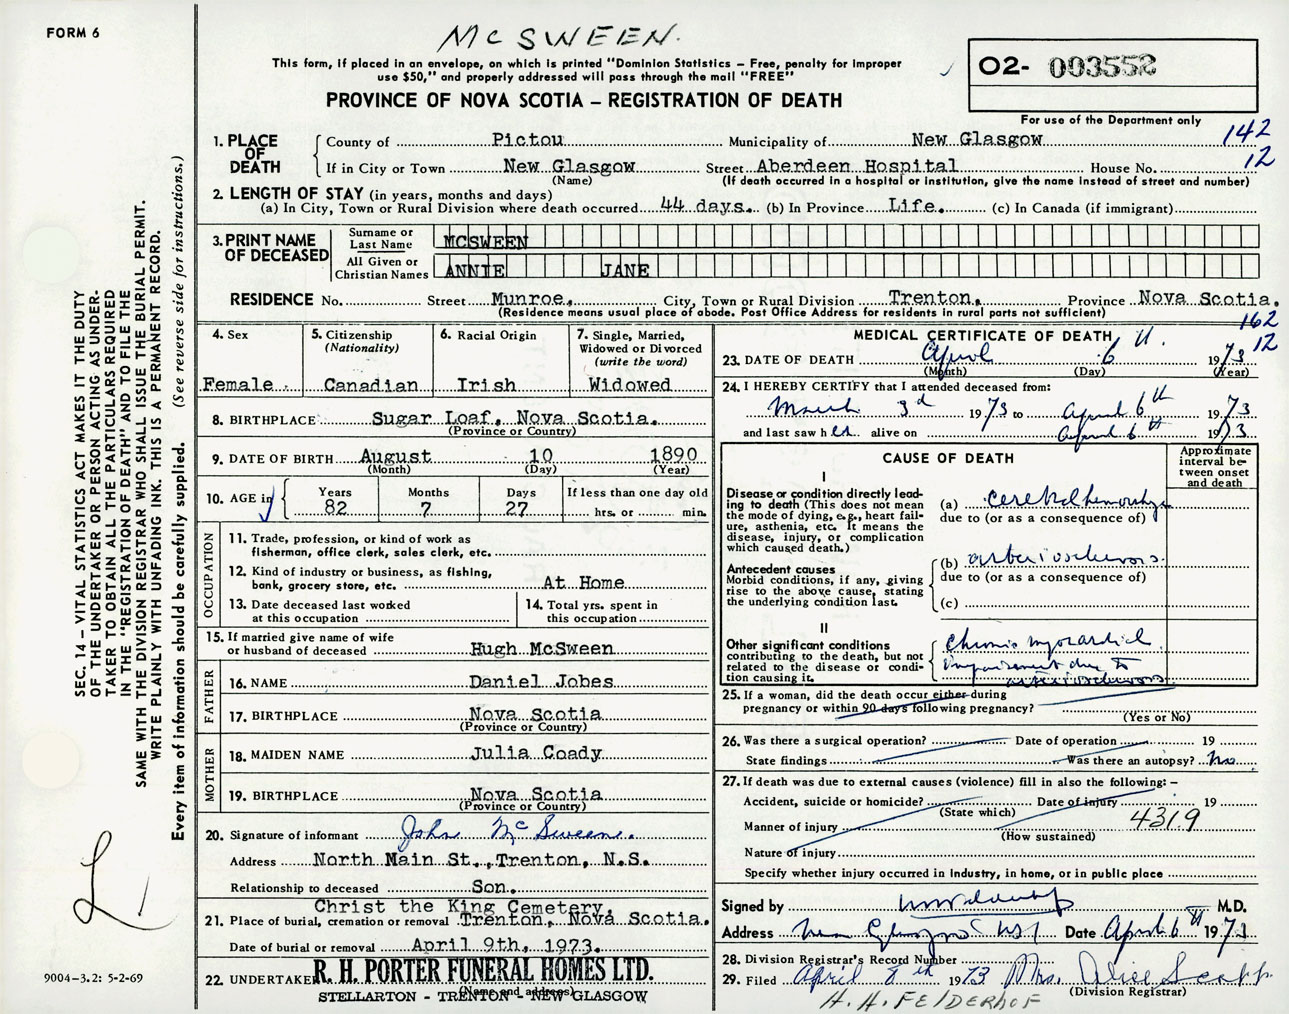 FORM 6
McSWEEN.
This form, if placed in an envelope, on which is printed "Dominion Statistics – Free, penalty for improper
use $50," and properly addressed will pass through the mail "FREE"
PROVINCE OF NOVA SCOTIA – REGISTRATION OF DEATH
O2- 003552
For use of the Department only
142
12
1. PLACE OF DEATH
County of Pictou Municipality of New Glasgow
If in City or Town New Glasgow Street Aberdeen Hospital House No.
(Name) (If death occurred in a hospital or institution, give the name instead of street and number)
2. LENGTH OF STAY (in years, months and days)
(a) In City, Town or Rural Division where death occurred 44 days. (b) In Province Life. (c) In Canada (if immigrant)
3. PRINT NAME OF DECEASED
Surname or Last Name MCSWEEN
All Given or Christian Names ANNIE JANE
RESIDENCE No. Street Munroe, City, Town or Rural Division Trenton, Province Nova Scotia.
(Residence means usual place of abode. Post Office Address for residents in rural parts not sufficient)
162
12
4. Sex
Female
5. Citizenship
(Nationality)
Canadian
6. Racial Origin
Irish
7. Single, Married,
Widowed or Divorced
(write the word)
Widowed
8. BIRTHPLACE Sugar Loaf, Nova Scotia.
(Province or Country)
9. DATE OF BIRTH August 10 1890
(Month) (Day) (Year)
10. AGE in
Years Months Days If less than one day old
82 7 27 hrs. or min.
OCCUPATION
11. Trade, profession, or kind of work as
fisherman, office clerk, sales clerk, etc.
12. Kind of industry or business, as fishing,
bank, grocery store, etc. At Home
13. Date deceased last worked
at this occupation
14. Total yrs. spent in
this occupation
15. If married give name of wife
or husband of deceased Hugh McSween
FATHER
16. NAME Daniel Jobes
17. BIRTHPLACE Nova Scotia
(Province or Country)
MOTHER
18. MAIDEN NAME Julia Coady
19. BIRTHPLACE Nova Scotia
(Province or Country)
20. Signature of informant John McSween.
Address North Main St., Trenton, N.S.
Relationship to deceased Son.
Christ the King Cemetery,
21. Place of burial, cremation or removal Trenton, Nova Scotia.
Date of burial or removal April 9th, 1973.
22. UNDERTAKER R. H. PORTER FUNERAL HOMES LTD.
(Name and address)
STELLARTON - TRENTON - NEW GLASGOW
MEDICAL CERTIFICATE OF DEATH
23. DATE OF DEATH April 6 1973
(Month) (Day) (Year)
24. I HEREBY CERTIFY that I attended deceased from:
March 3rd 1973 to April 6th 1973
and last saw her alive on April 6th 1973
CAUSE OF DEATH
Approximate
interval be-
tween onset
and death
I
Disease or condition directly lead-
ing to death (This does not mean
the mode of dying, e.g., heart fail-
ure, asthenia, etc. It means the
disease, injury, or complication
which caused death.)
(a) cerebral hemorrhage
due to (or as a consequence of)
Antecedent causes
Morbid conditions, if any, giving
rise to the above cause, stating
the underlying condition last.
(b) arteriosclerosis
due to (or as a consequence of)
(c)
II
Other significant conditions
contributing to the death, but not
related to the disease or condi-
tion causing it.
Chronic myocardial
impairment due to
arteriosclerosis
25. If a woman, did the death occur either during
pregnancy or within 90 days following pregnancy?
(Yes or No)
26. Was there a surgical operation? Date of operation 19
State findings Was there an autopsy? No.
27. If death was due to external causes (violence) fill in also the following: –
Accident, suicide or homicide? Date of injury 19
(State which)
Manner of injury 4319
(How sustained)
Nature of injury
Specify whether injury occurred in industry, in home, or in public place
Signed by M.D.
Address New Glasgow NS Date April 6th 1973
28. Division Registrar's Record Number
29. Filed April 8th 1973 Mrs. Alice
(Division Registrar)
H. H. FELDERHOF
SEC. 14 – VITAL STATISTICS ACT MAKES IT THE DUTY
OF THE UNDERTAKER OR PERSON ACTING AS UNDER-
TAKER TO OBTAIN ALL THE PARTICULARS REQUIRED
IN THE "REGISTRATION OF DEATH" AND TO FILE THE
SAME WITH THE DIVISION REGISTRAR WHO SHALL ISSUE THE BURIAL PERMIT.
WRITE PLAINLY WITH UNFADING INK. THIS IS A PERMANENT RECORD.
Every item of information should be carefully supplied. (See reverse side for instructions.)
9004-3.2: 5-2-69